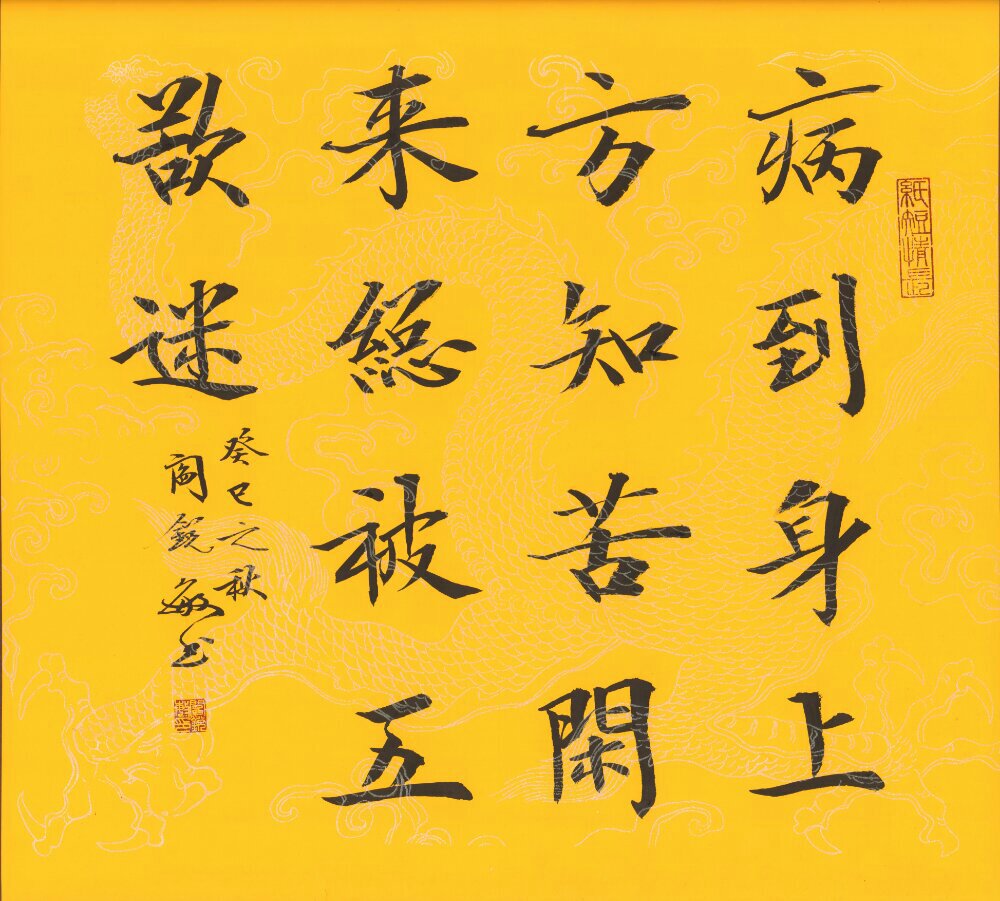 病到身上
方知苦閑
来總被五
欲迷
癸巳之秋
閻銳敏书
紙短情長